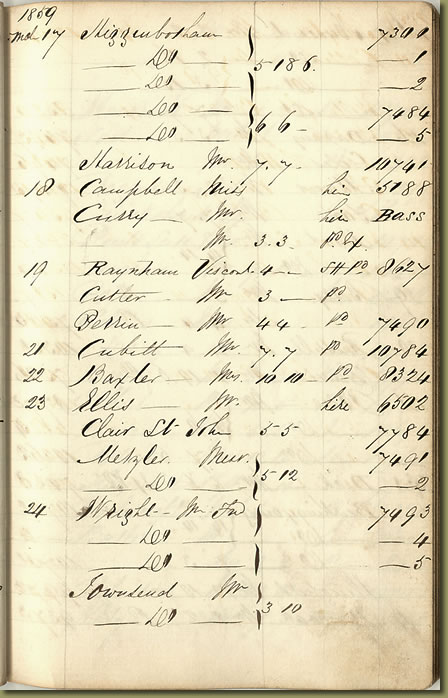 1859
Mch 17 Higgenbotham 7300
— Do — 5 18 6. — 1
— Do — — 2
— Do — 7484
— Do — 6 6 - — 5
Harrison Mr. 7. 7. 10741
18 Campbell Miss hire 5188
Curry — Mr. hire Bass
Mr. 3. 3. Pd
19 Raynham Viscount 4 — Pd 8627
Cutter — Mr 3 — Pd.
Perrin — Mr 4 4 - Pd 7490
21 Cubitt Mr. 7. 7 Pd 10784
22 Baxter — Mrs. 10 10 - Pd 8324
23 Ellis — Mr. hire 6502
Clair St John 5 5 7784
Metzler. Messr. 7491
— Do — 5 12 — 2
24 Wright — Mr 7493
— Do — — 4
— Do — — 5
Townsend Mr
— Do — 3 10